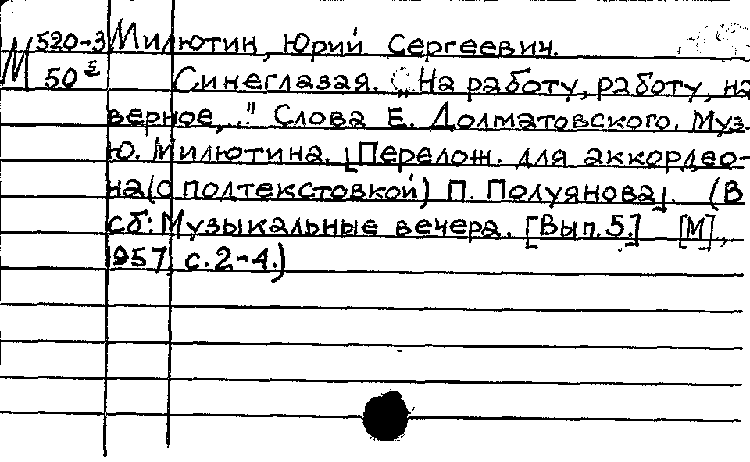 М 520-3 Милютин, Юрий Сергеевич.
50 Синеглазая. „На работу, работу, на
верное,.." Слова Е. Долматовского. Муз.
Ю. Милютина. [Перелож. для аккордео-
на (с подтекстовкой) П. Полуянова]. (В
сб: Музыкальные вечера. [Вып. 5.] [М],
1957, с. 2-4.)